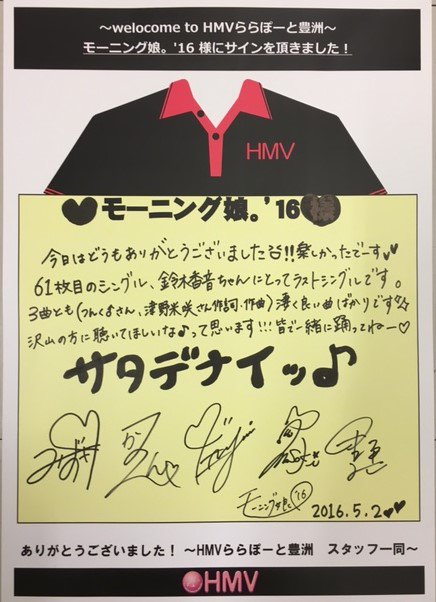 ～welocome to HMVららぽーと豊洲～
モーニング娘。'16 様にサインを頂きました！
HMV
モーニング娘。'16 様
今日はどうもありがとうございました!!楽しかったでーす
61枚目のシングル、鈴木香音ちゃんにとってラストシングルです。
3曲とも(つんく♂さん、津野米咲さん作詞・作曲)凄く良い曲ばかりです☆
沢山の方に聴いてほしいな♪って思います!!!皆で一緒に踊ってねー♡
サタデナイッ♪
モーニング娘。'16
2016.5.2♥♥
ありがとうございました！ ～HMVららぽーと豊洲　スタッフ一同～
HMV